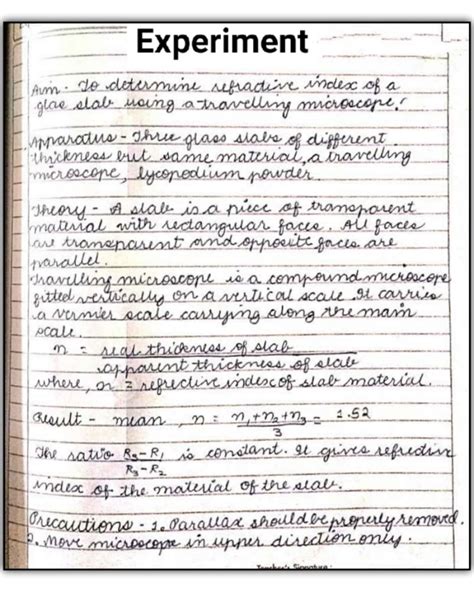 Experiment
Aim - To determine refractive index of a
glas slab using a travelling microscope.
Apparatus - Three glass slabs of different
thickness but same material, a travelling
microscope, lycopodium powder.
Theory - A slab is a piece of transparent
material with rectangular faces. All faces
are transparent and opposite faces are
parallel.
Travelling microscope is a compound microscope
fitted vertically on a vertical scale. It carries
a vernier scale carrying along the main
scale.
n = real thickness of slab
apparent thickness of slab
where, n = refractive index of slab material.
Result - mean, n = n1+n2+n3 = 1.52
3
The ratio R3-R1 is constant. It gives refractive
R3-R2
index of the material of the slab.
Precautions - 1. Parallax should be properly removed.
2. Move microscope in upper direction only.
Teacher's Signature: